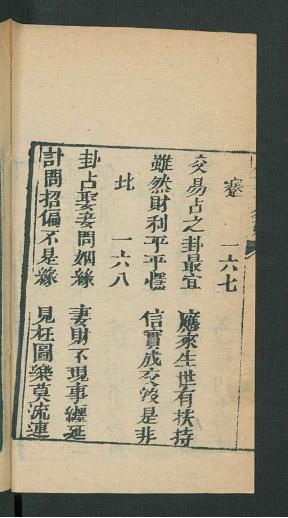 蹇 一六七
交易占之卦最宜 應來生世有扶持
雖然財利平平穩 信實成交没是非
此 一六八
卦占娶妻問姻緣 妻財不現事纏延
計問招偏不是緣 見枉圖樂莫流連